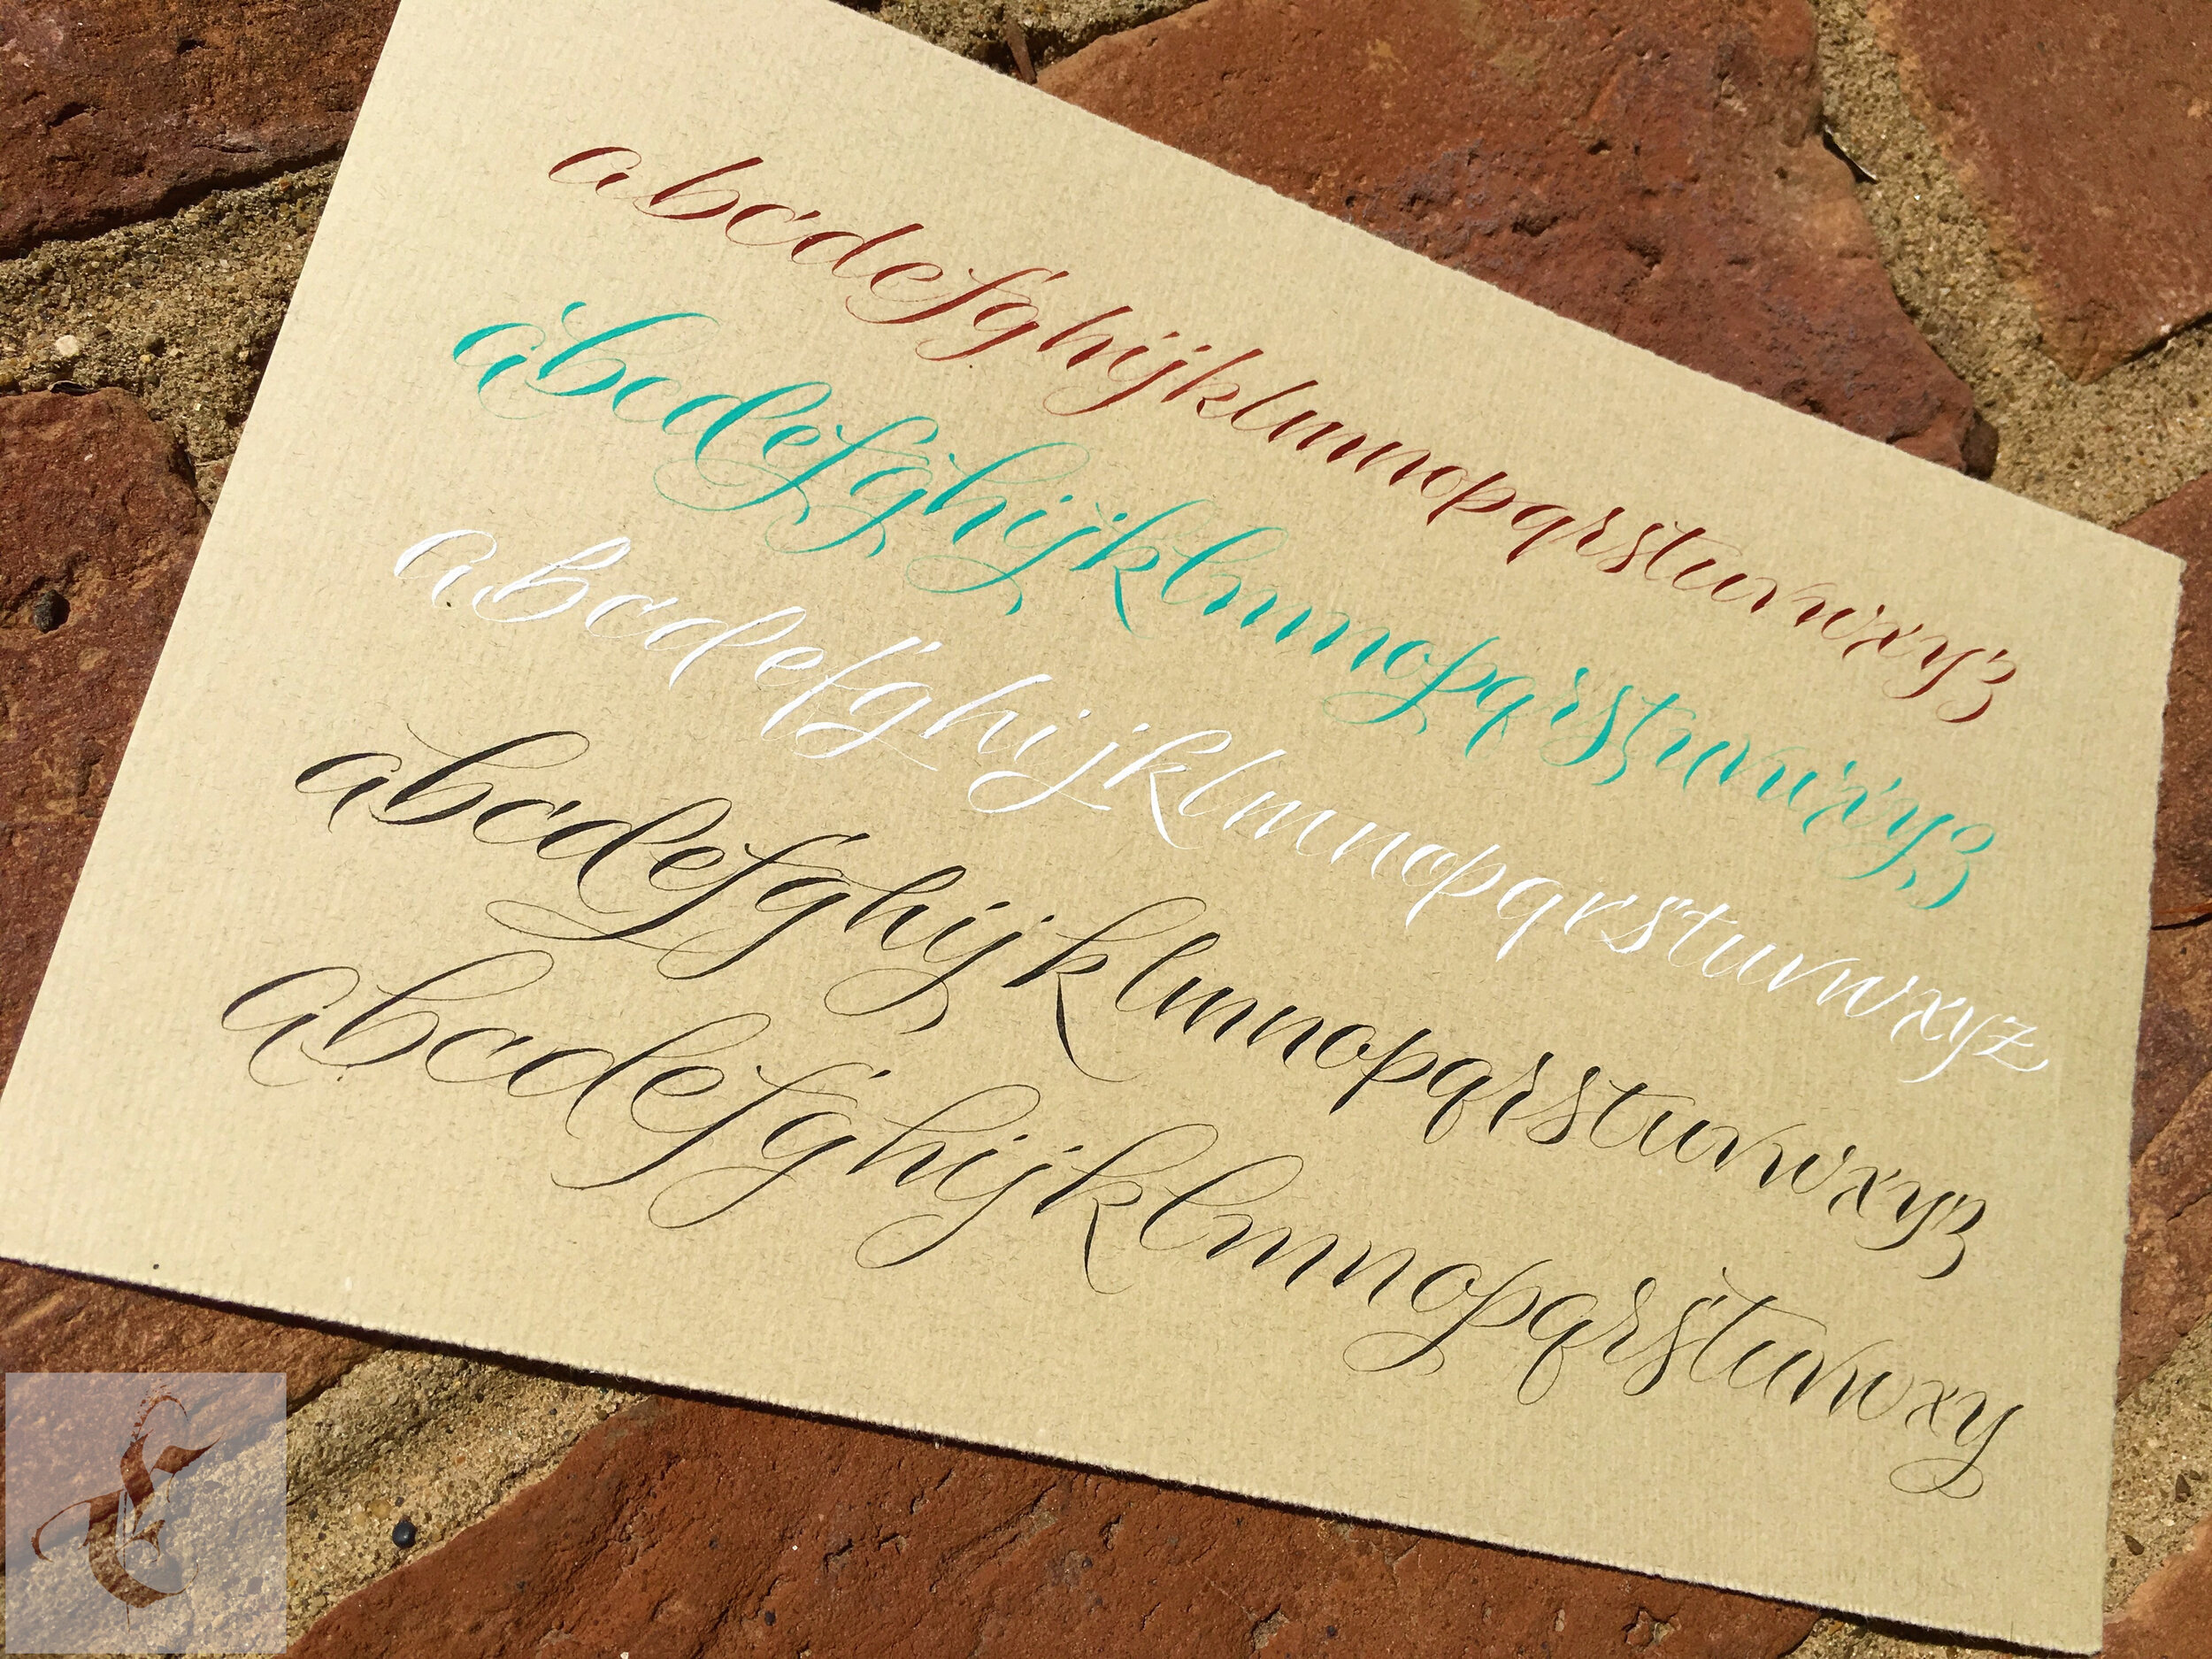 abcdefghijklmnopqrstuvwxyz
abcdefghijklmnopqrstuvwxyz
abcdefghijklmnopqrstuvwxyz
abcdefghijklmnopqrstuvwxyz
abcdefghijklmnopqrstuvwxy